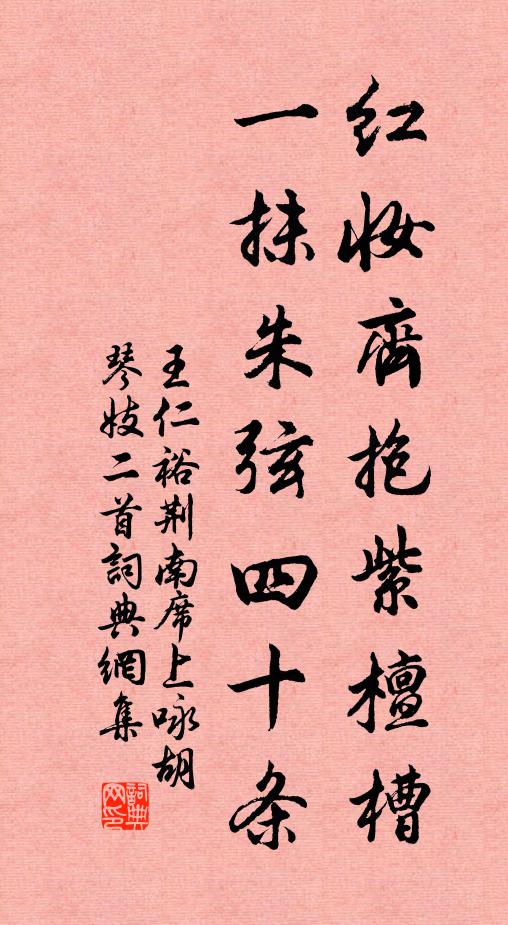 红妆齊抱紫檀槽
一抹朱弦四十条
王仁裕荆南席上咏胡
琴妓二首詞典網集
詞典
网印